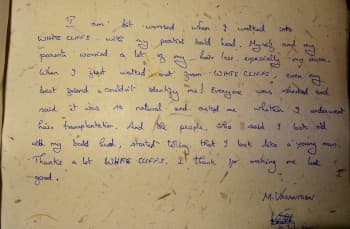 I am bit worried when I walked into
WHITE CLIFFS with my partial bald head. Myself and my
parents worried a lot of my hair loss, especially my mom.
When I just walked out from WHITE CLIFFS, even my
best friend couldn't identify me! Everyone was shocked and
said it was so natural and asked me whether I underwent
hair transplantation. And the people, who said I look old
with my bald head, started telling that I look like a young man.
Thanks a lot WHITE CLIFFS. I thank for making me look
good.
M.